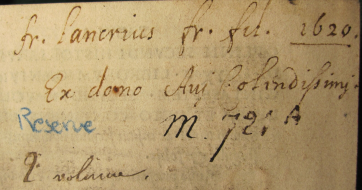 fr. Lancrius fr. fil. 1620.
Ex dono Auj Colendissimj.
Reserve m. 721 A
2 volume.